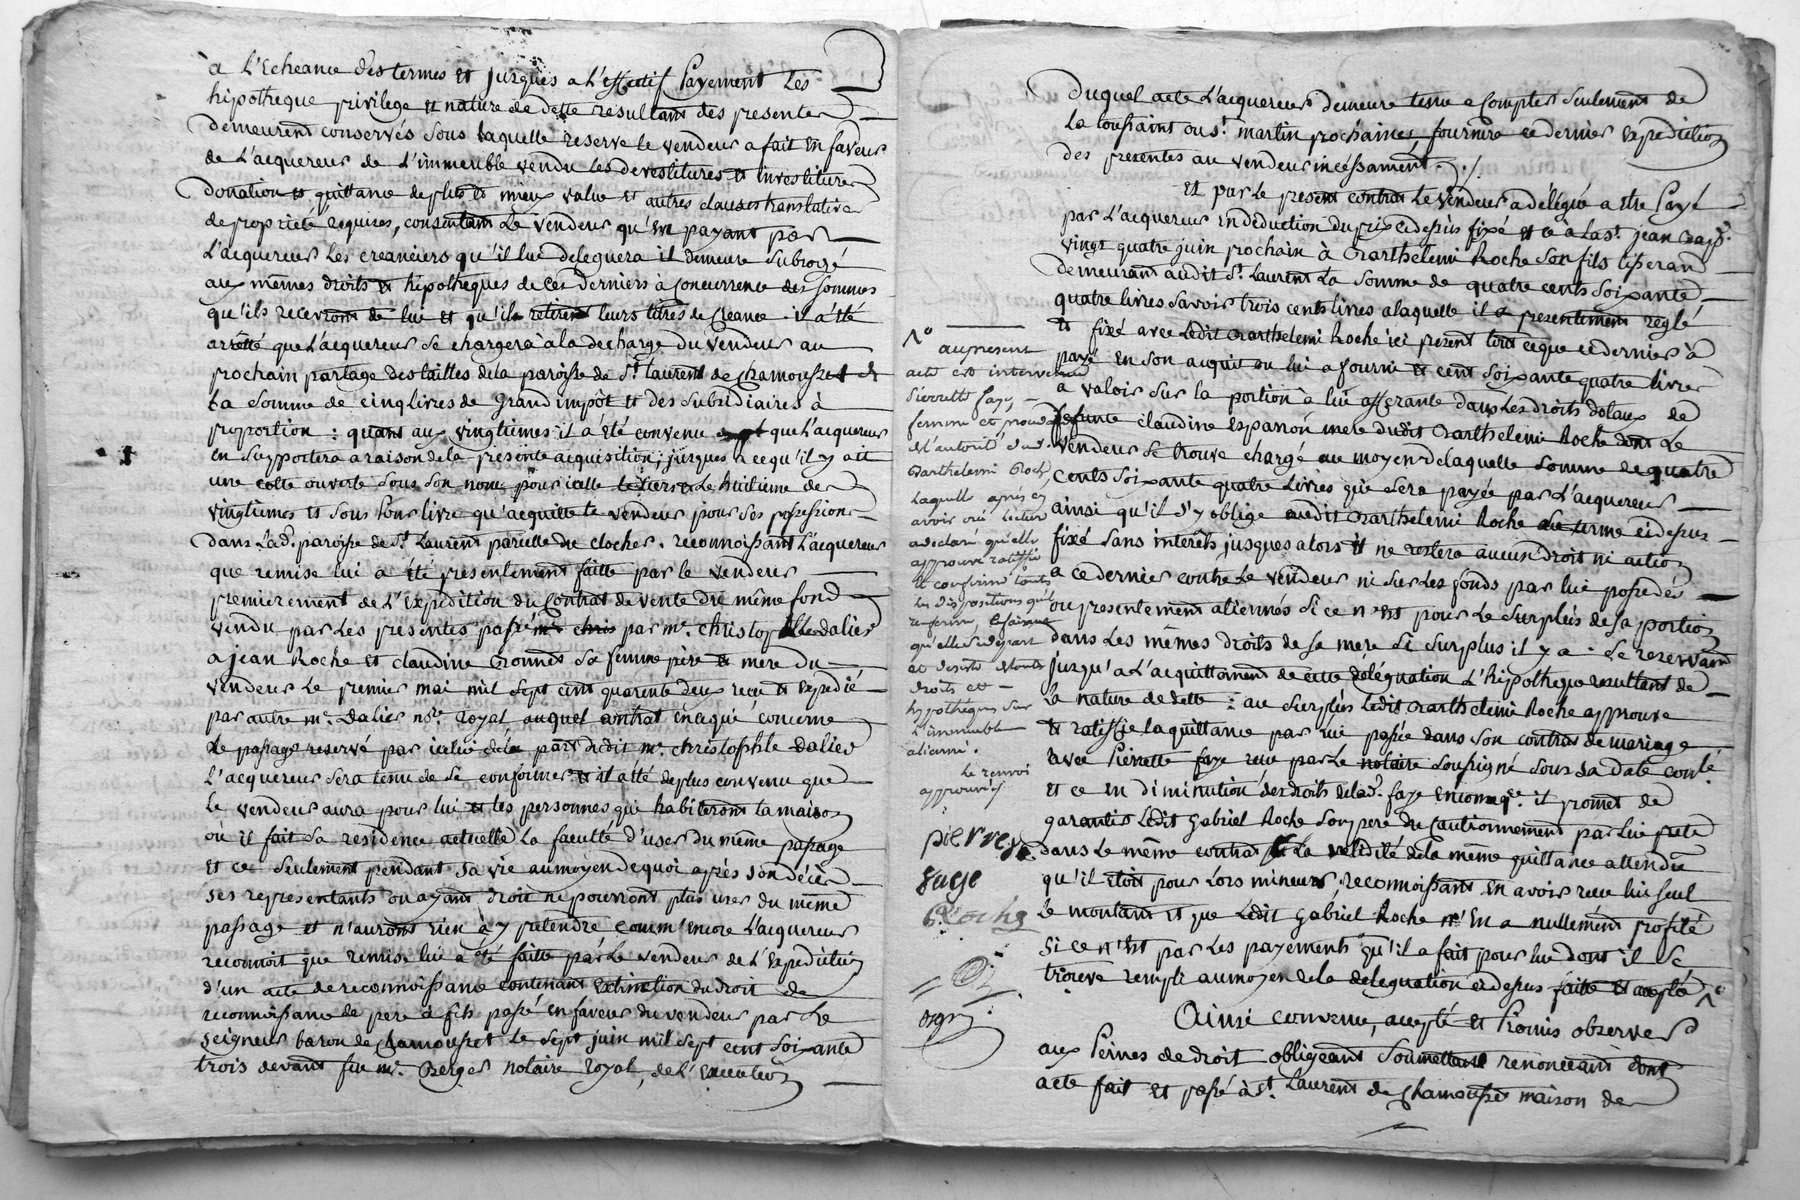 à L'Echeance des termes et jusques a L'effectif Payement Les
hipotheque privilege et nature de dette resultant des presentes
demeurent conservés sous laquelle reserve le vendeur a fait En faveur
de L'acquereur de L'immeuble vendu les devestitures et investitures
Donation et quittance de plus et mieux value et autres clauses translatives
de propriété requises, consentant Le vendeur qu'En payant par
L'acquereur Les creanciers qu'il lui deleguera il demeure subrogé
aux mêmes droits et hipotheques de ces derniers à concurrence des sommes
qu'ils recevront de lui et qu'il retirent leurs titres de Creance. il a été
arretté que L'acquereur se chargera à la decharge du vendeur au
prochain partage des tailles de la paroisse de St Laurent de Chamousset de
La somme de cinq livres de grand impot et des subsidiaires à
proportion : quant aux vingtiemes il a été convenu que L'acquereur
En supportera a raison de la presente acquisition, jusques a ce qu'il y ait
une cotte ouverte sous son nom pour icelle le tiers et le huitieme des
vingtiemes et sous pour livre qu'acquitte le vendeur pour ses possessions
dans lad. paroisse de St Laurent parcelle du clocher. reconnoissant L'acquereur
que remise lui a été presentement faitte par le vendeur
premierement de L'Expedition du Contrat de vente du même fond
vendu par Les presentes passé par me. christophle dalier
a jean Roche et claudine Bonnet sa femme père et mere du
vendeur Le premier mai mil sept cent quarente deux recu et Expedié
par autre me. Dalier nore. Royal auquel contrat En ce qui concerne
Le passage reservé par icelui de la part dudit me. christophle dalier
L'acquereur sera tenu de se conformer et il a été de plus convenu que
Le vendeur aura pour lui et les personnes qui habiteront la maison
où il fait sa residence actuelle La faculté d'user du même passage
et ce seulement pendant sa vie au moyen de quoi après son décès
ses representants ou ayant droit ne pourront plus user du même
passage et n'auront rien à y pretendre Comm'encore L'acquereur
reconnoit que remise lui a été faitte par Le vendeur de L'Expedition
d'un acte de reconnoissance contenant Extinction du droit de
reconnoissance de pere à fils passé en faveur du vendeur par Le
seigneur baron de Chamousset Le sept juin mil sept cent soixante
trois devant feu me. Berger notaire Royal, de L'Execution
Duquel acte L'acquereur demeure tenu a Compter seulement de
La toussaint ou st. martin prochaine, fournira ce dernier Expedition
des presentes au vendeur incessament ./.
Et par Le present contrat Le vendeur a délégué a Etre Payé
par L'acquereur En deduction du prix ci dessus fixé et ce a La St. jean Bapt.
vingt quatre juin prochain à Barthelemi Roche son fils tisserand
demeurant audit St. Laurent La somme de quatre cents soixante
quatre livres savoir trois cents livres a laquelle il a presentement reglé
et fixé avec Ledit Barthelemi Roche ici present tout ce que ce dernier à
payé En son acquit ou lui a fourni et cent soixante quatre livres
a valoir sur la portion à lui afferante dans Les droits dotaux de
defunte claudine Esparron mere dudit Barthelemi Roche dont Le
vendeur se trouve chargé au moyen de laquelle somme de quatre
Cents soixante quatre Livres qui sera payée par L'acquereur
ainsi qu'il s'y oblige audit Barthelemi Roche au terme ci dessus
fixé sans interêts jusques alors il ne restera aucun droit ni action
a ce dernier contre Le vendeur ni sur Les fonds par lui possedés
ou presentement aliennés si ce n'est pour Le surplus de sa portion
dans Les mêmes droits de sa mere si surplus il y a. Se reservant
jusqu'a L'acquittement de cette délégation L'hipotheque resultant de
La nature de dette : au surplus Ledit Barthelemi Roche approuve
et ratiffie La quittance par lui passée dans son contrat de mariage
avec Pierrette faye recu par Le notaire soussigné sous sa date conlé.
et ce en diminution des droits de lad. faye En ce que il promet de
garantir Ledit Gabriel Roche son pere du Cautionnement par Lui preté
dans Le même contrat La validité de la même quittance attendu
qu'il etoit pour Lors mineur, reconnoissant En avoir recu lui seul
Le montant et que Ledit Gabriel Roche n'En a nullement profité
si ce n'est par Les payements qu'il a fait pour lui dont il se
trouve rempli au moyen de la delegation ci dessus faitte et acceptée
Ainsi convenu, accepté et Promis observer
aux Peines de droit obligeant Soumettant renonceant dont
acte fait et passé à St. Laurent de Chamousset maison de
au present
acte est intervenue
Pierrette faye
femme et
de l'autorité dud.
Barthelemi Roche
laquelle après en
avoir oui lecture
a declaré qu'elle
approuve ratiffie
et confirme toutes
les dispositions qu'il
renferme,
qu'elle se depart
et desiste de tous
droits et
hypothèques sur
l'immeuble
alienné.
Le renvoi
approuvé
pierre
fage
Roche